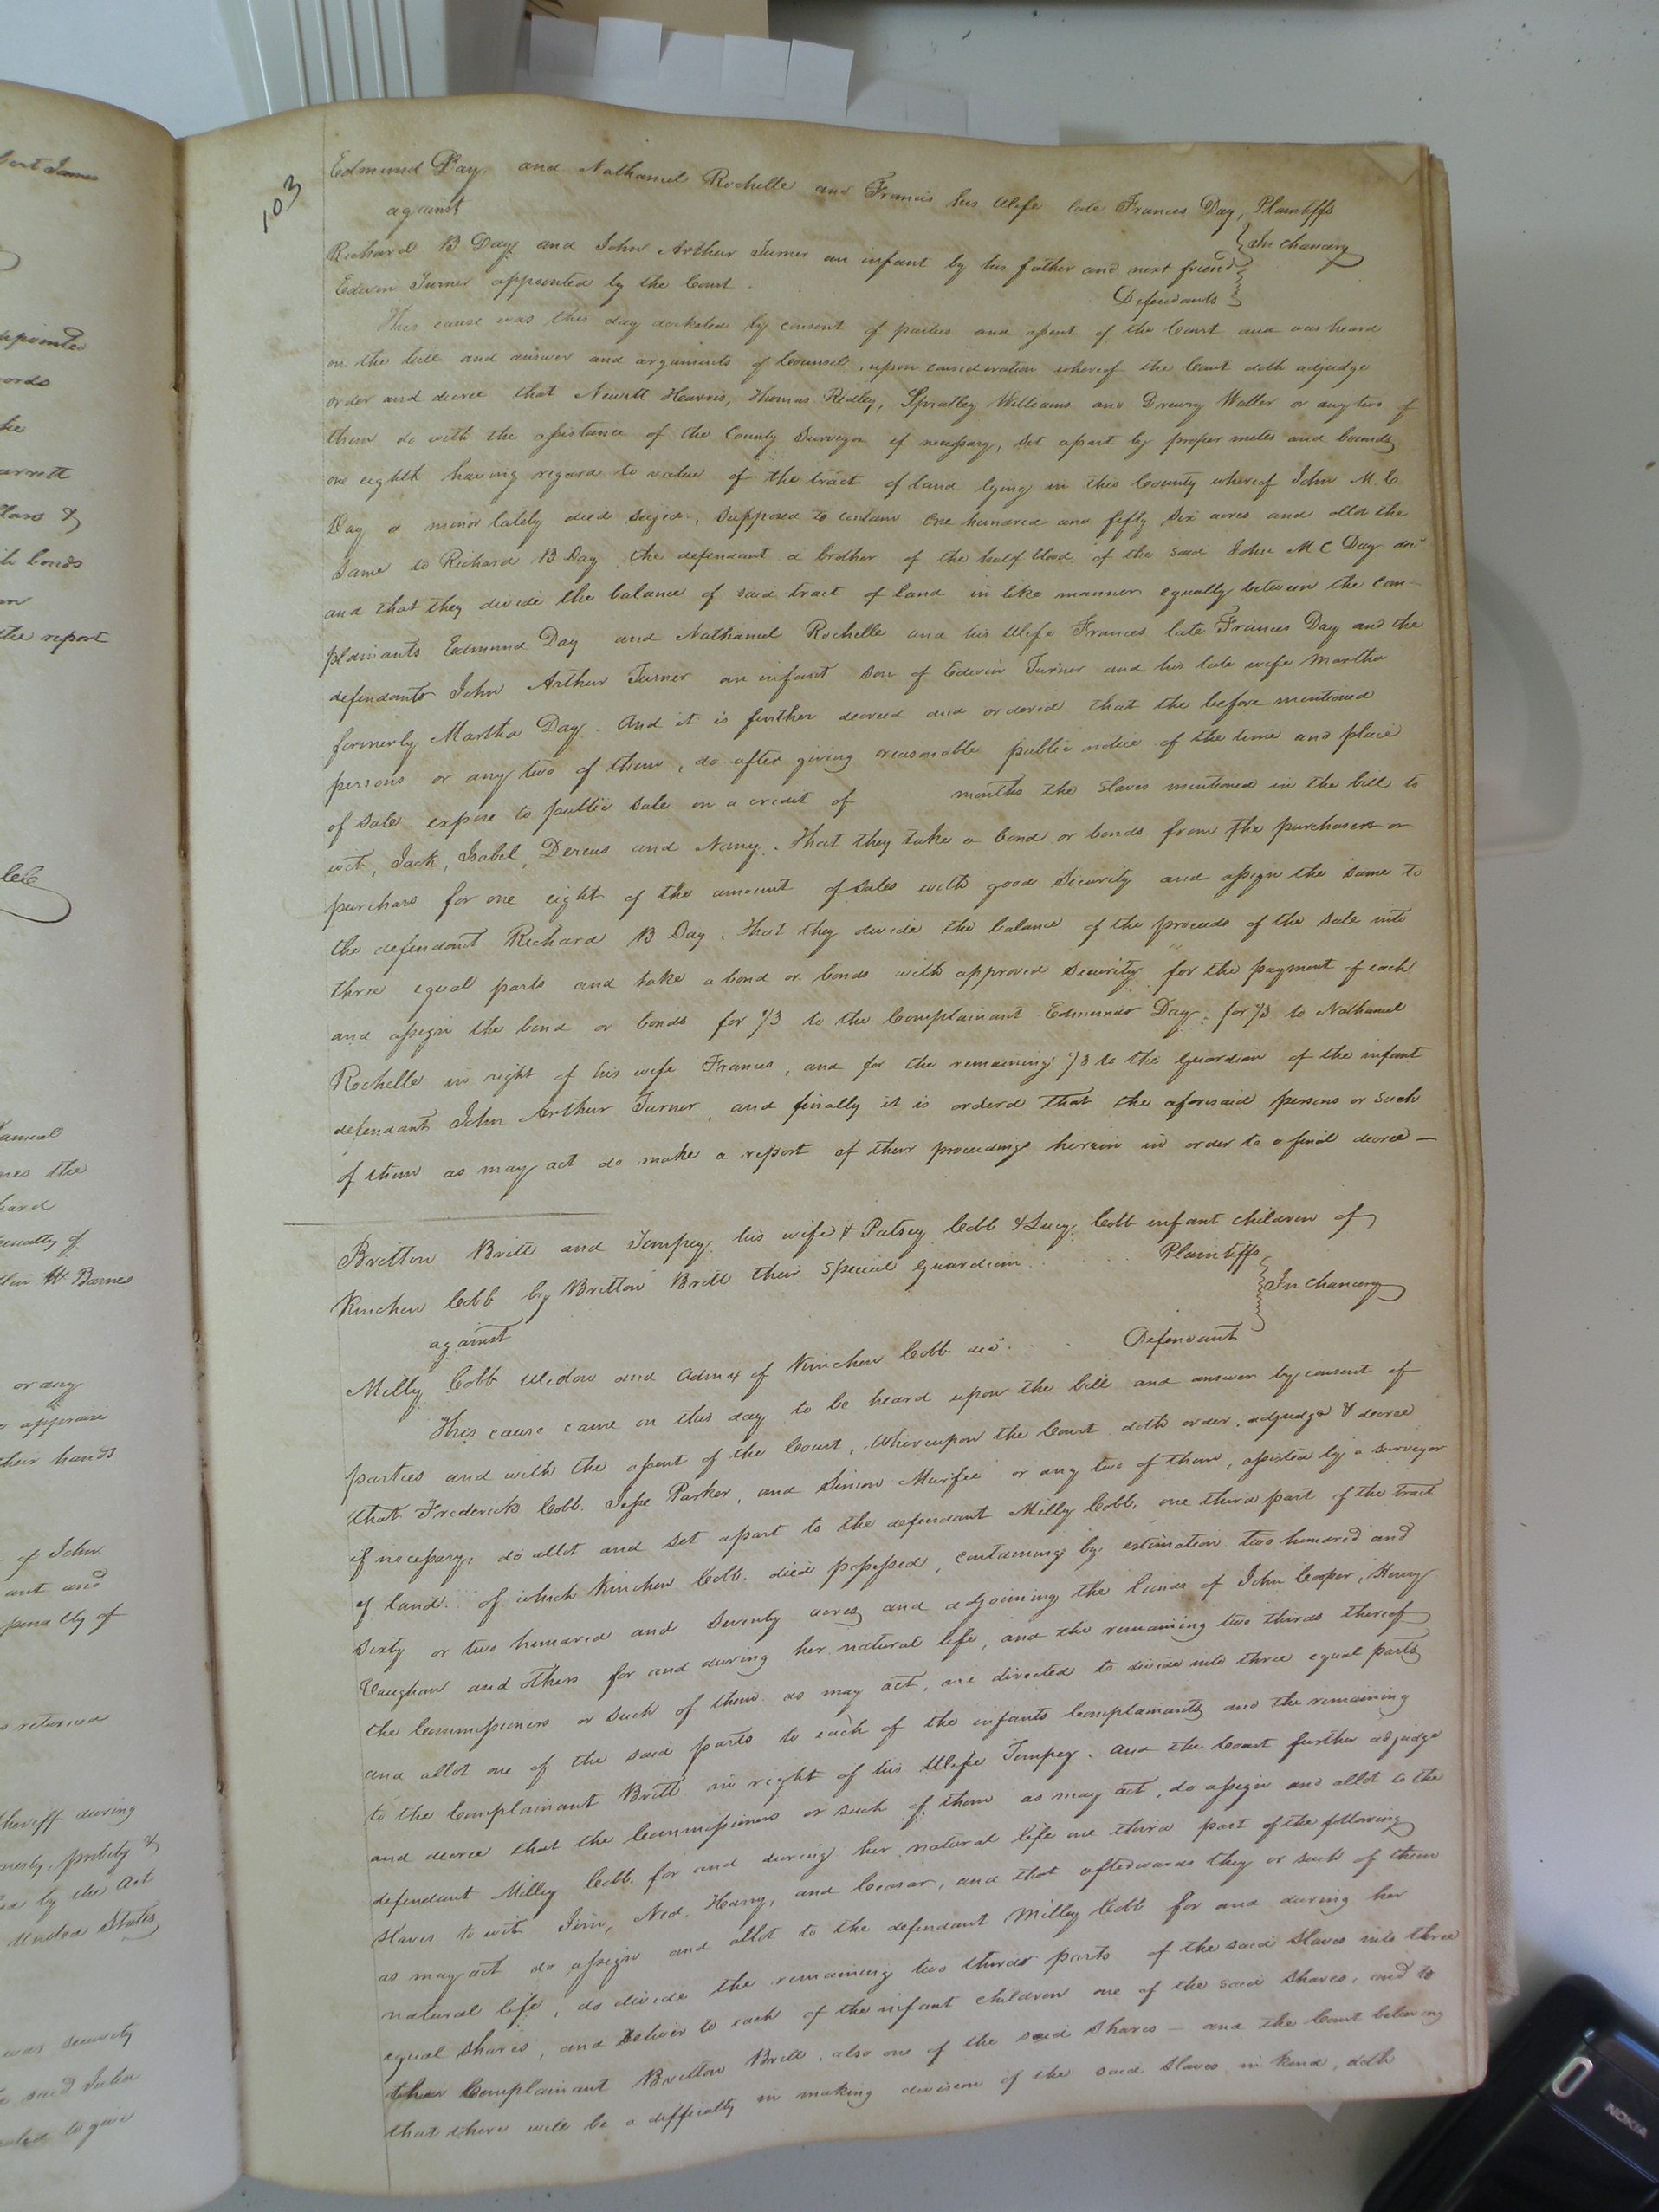 103
Edmund Day, and Nathaniel Rochelle and Francis his Wife late Frances Day, Plaintiffs
against
In chancery
Richard B Day and John Arthur Turner an infant by his father and next friend
Edwin Turner appointed by the Court.
Defendants
This cause was this day docketed by consent of parties and assent of the Court and was heard
on the bill and answer and arguments of Counsel, upon consideration whereof the Court doth adjudge
order and decree that Newitt Harris, Thomas Ridley, Spratley Williams and Drewry Waller or any two of
them do with the assistance of the County Surveyor if necessary, set apart by proper metes and bounds
one eighth having regard to value of the tract of land lying in this County whereof John M. C.
Day a minor lately died seized, supposed to contain One hundred and fifty six acres and allot the
same to Richard B Day the defendant a brother of the half blood of the said John M C Day decd
and that they divide the balance of said tract of land in like manner equally between the com-
plainants Edmund Day and Nathaniel Rochelle and his Wife Frances late Frances Day and the
defendants John Arthur Turner an infant son of Edwin Turner and his late wife Martha
formerly Martha Day. And it is further decreed and ordered that the before mentioned
persons or any two of them, do after giving reasonable public notice of the time and place
of sale expose to public sale on a credit of months the slaves mentioned in the bill to
wit, Jack, Isabel, Dercus and Nany. That they take a bond or bonds from the purchasers or
purchase for one eight of the amount of sales with good security and assign the same to
the defendant Richard B Day. That they divide the balance of the proceeds of the sale into
three equal parts and take a bond or bonds with approved security for the payment of each
and assign the bond or bonds for 1/3 to the Complainant Edmund Day, for 1/3 to Nathaniel
Rochelle in right of his wife Frances, and for the remaining 1/3 to the Guardian of the infant
defendant John Arthur Turner, and finally it is orderd that the aforesaid persons or such
of them as may act do make a report of their proceedings herein in order to a final decree—
Britton Britt and Tempey his wife & Patsey Cobb & Lucy Cobb infant children of
Kinchen Cobb by Britton Britt their special guardian Plaintiffs
In chancery
against
Milly Cobb Widow and Admx of Kinchen Cobb decd. Defendant
This cause came on this day to be heard upon the bill and answer by consent of
parties and with the assent of the Court, Whereupon the Court doth order, adjudge & decree
that Frederick Cobb, Jesse Parker, and Simon Murfee or any two of them, assisted by a surveyor
if necessary, do allot and set apart to the defendant Milly Cobb, one third part of the tract
of land of which Kinchen Cobb died possessed, containing by estimation two hundred and
sixty or two hundred and seventy acres and adjoining the lands of John Cooper, Henry
Vaughan and others for and during her natural life, and the remaining two thirds thereof
the Commissioners or such of them as may act, are directed to divide into three equal parts
and allot one of the said parts to each of the infants Complainants and the remaining
to the Complainant Britt in right of his Wife Tempey. And the Court further adjudge
and decree that the Commissioners or such of them as may act, do assign and allot to the
defendant Milly Cobb for and during her natural life one third part of the following
slaves to wit Jim, Ned, Harry, and Ceasar, and that afterwards they or such of them
as may act do assign and allot to the defendant Milly Cobb for and during her
natural life, do divide the remaining two thirds parts of the said slaves into three
equal shares, and deliver to each of the infant children one of the said shares, and to
their Complainant Britton Britt, also one of the said shares — and the Court believing
that there will be a difficulty in making division of the said slaves in kind, doth
NOKIA
the report
H Barnes
or any
appraise
their hands
of John
penalty of
returned
Sheriff during
by the Act
United States
was security